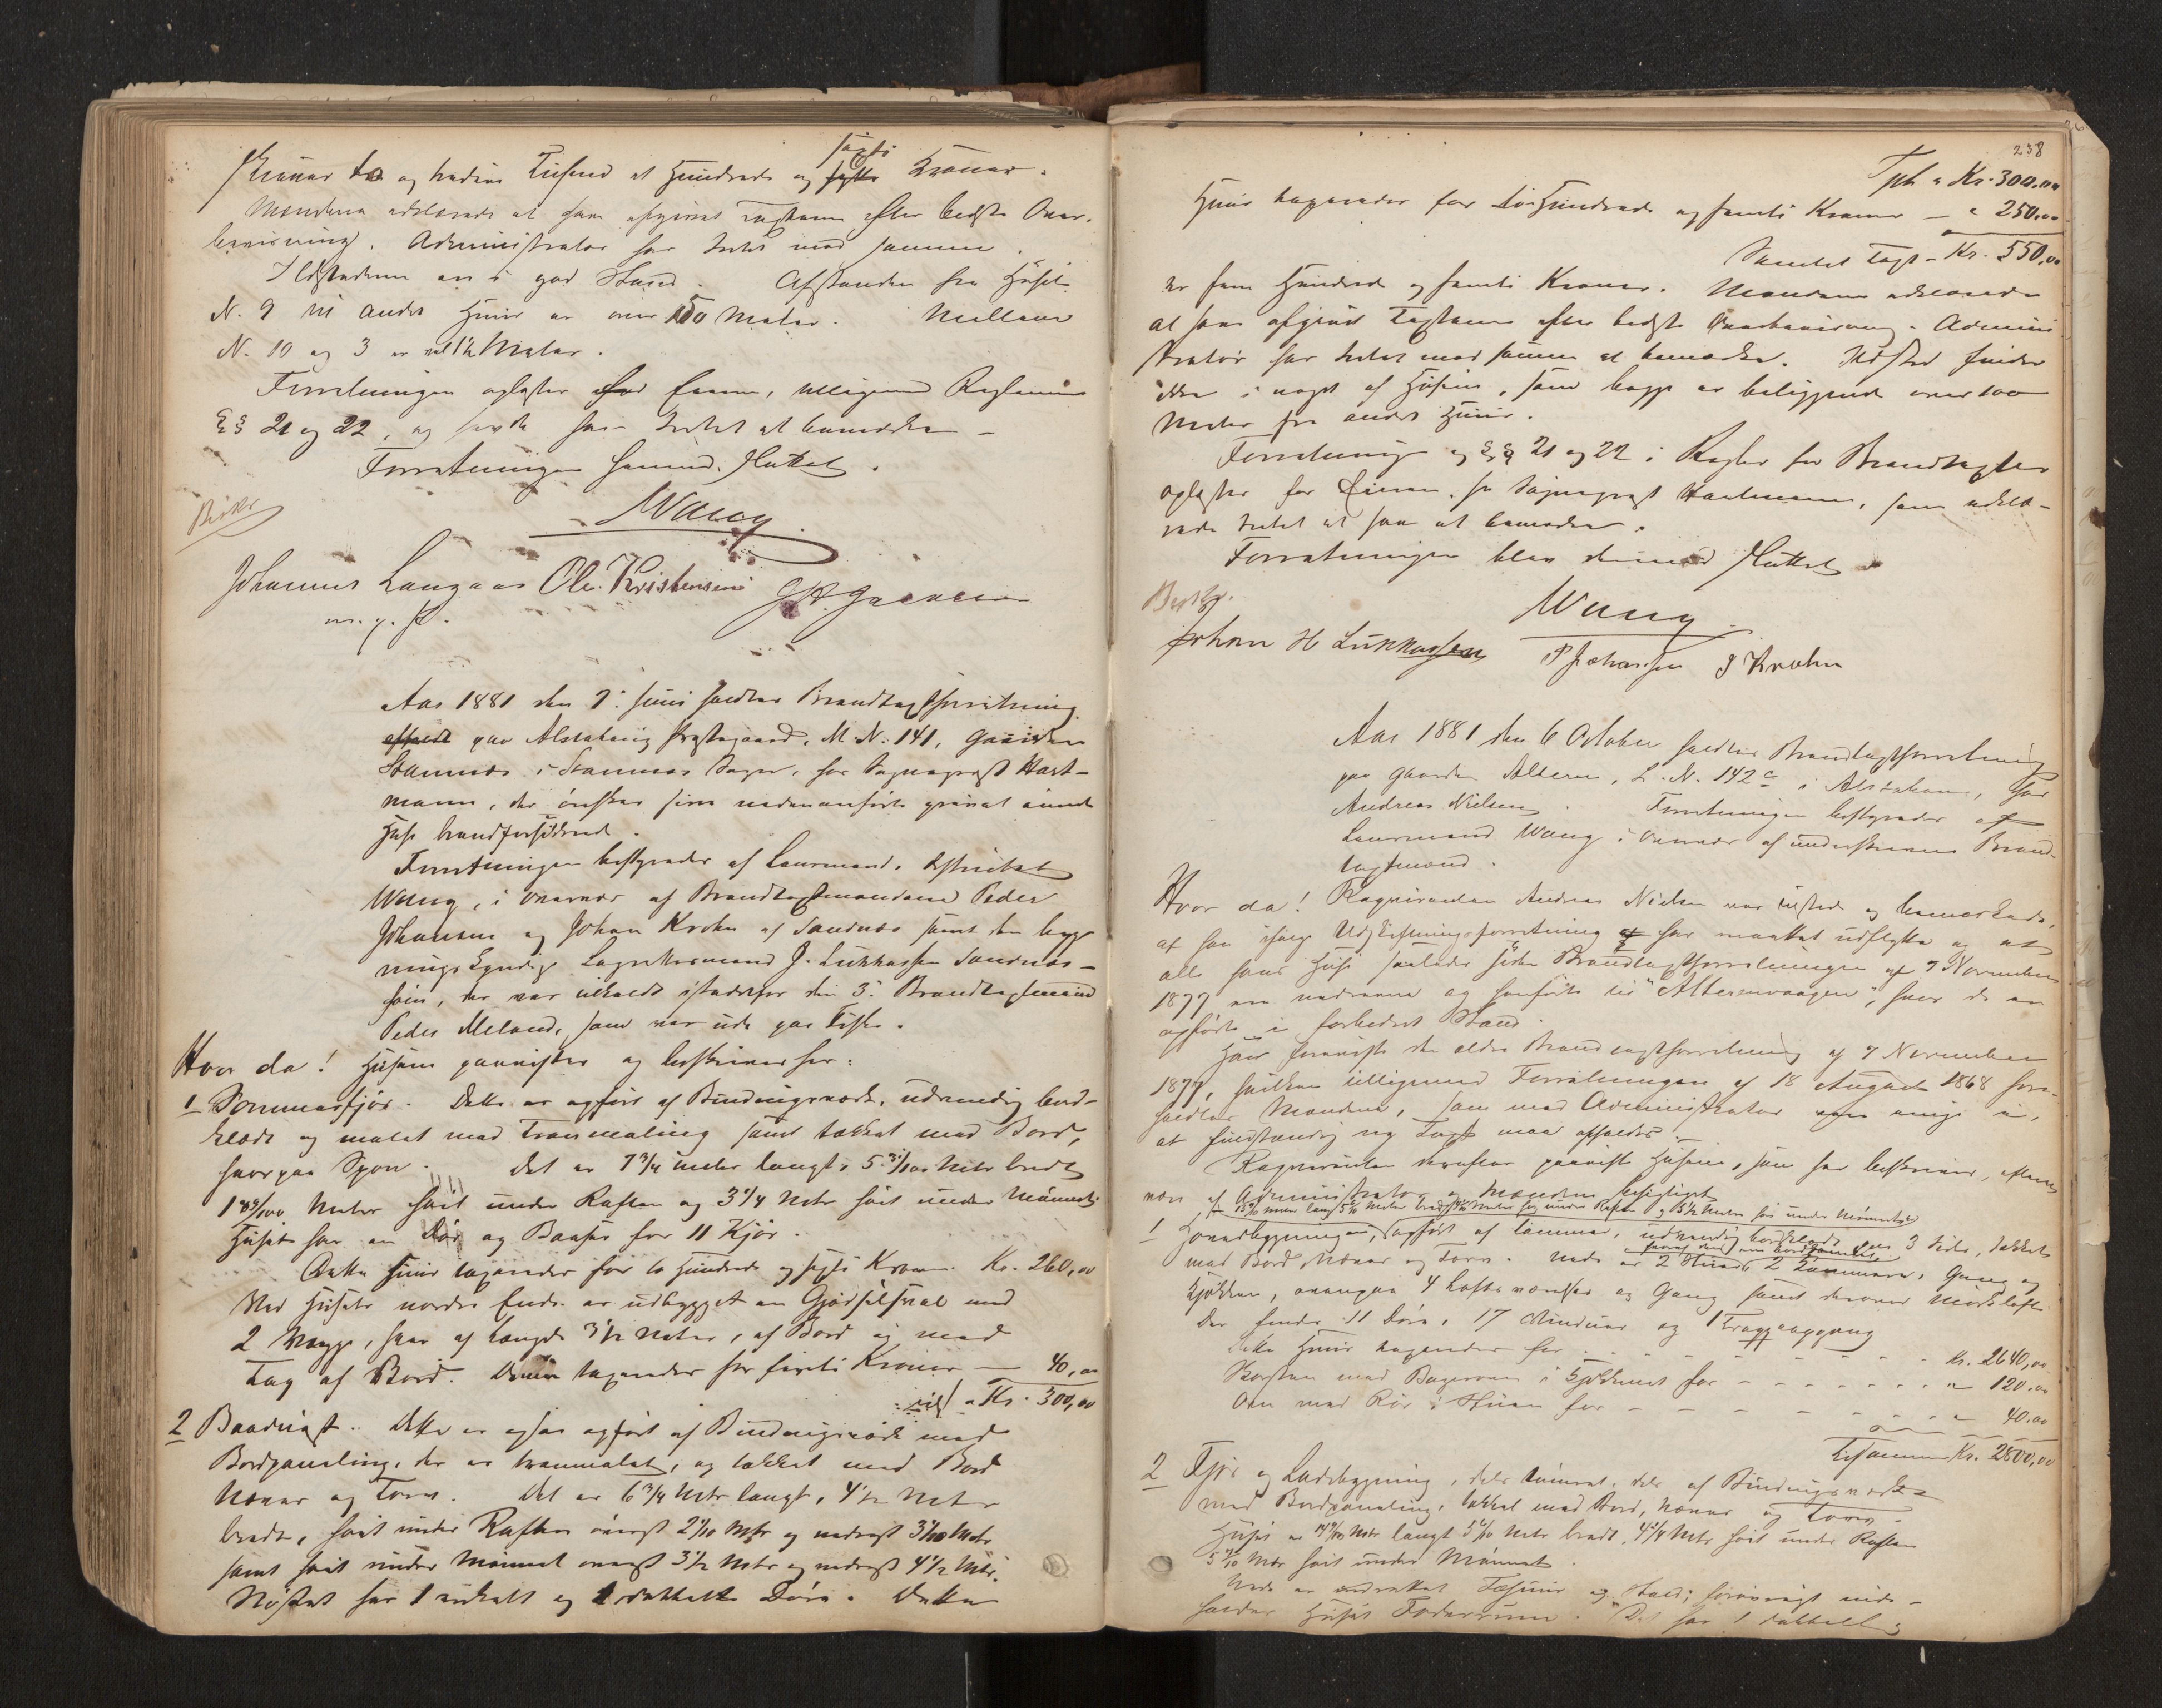 Kroner to og tredive Tusend et Hundrede og sexti Kroner.
Mændene erklærede at have afgivet Taxterne efter bedste Over-
beviisning. Administrator har Intet mod samme
Ildstederne er i god Stand. Afstanden fra Huset
N. 9 til andet Huus er over 100 Meter. Mellem
N. 10 og 3 er Meter.
Forretningen oplæstes for Eieren, tilligemed Reglernes
§§ 21 og 22, og havde han Intet at bemærke –
Forretningen hermed sluttet.
Beskr
Wang
Johannes Langaas Ole Kristensen
m. p. P.
Aar 1881 den 7. Juni holdtes Brandtaxtforretning
paa Alstahaug Prestegaard, M. N. 141, Gaarden
Stamnes i Stamnes Sogn, for Sognepræst Hart-
mann, der ønsker sine nedenanførte privat eiende
Huse brandforsikrede.
Forretningen bestyredes af Lensmand, Distriktet
Wang, i Overvær af Brandtaxtmændene Peder
Johansen og Johan Krohn af Sandnes samt den byg-
ningskyndige Lagrettesmand J. Lukkassen Sandnes-
søen, der var tilkaldt istedetfor den 3. Brandtaxtmand
Peder Meland, som var ude paa Fiske.
Hvor da! Husene paavistes og beskrives her:
1 Sommerfjøs. Dette er opført af Bindingsværk, udvendig bord-
klædt og malet med Tranmaling samt tækket med Bord,
hvorpaa Spon. Det er 7 3/4 Meter langt, 5 Metr bredt
Meter høit under Raften og 3 1/4 Metr høit under Mønnet.
Huset har en Dør og Baaser for 11 Kjør.
Dette Huus taxeredes for to Hundrede og sexti Kroner Kr. 260,00
Ved Husets nordre Ende er udbygget en Gjødselsval med
2 Vægge, hver af Længde 3 1/2 Meter, af Bord og med
Tag af Bord. Denne taxeredes for firti Kroner — 40,00
Kr. 300,00
2 Baadnøst. Dette er ogsaa opført af Bindingsværk med
Bordpaneling, der er tranmalet, og tækket med Bord
Næver og Torv. Det er 6 3/4 Metr langt, 4 1/2 Meter
bredt, høit under Raften øverst 2 1/10 Mtr og nederst 3 Metr
samt høit under Mønnet øverst 3 1/2 Metr og nederst 4 1/2 Mtr.
Nøstet har 1 enkelt og 1 dobbelt Dør. Dette
238
Tph " Kr. 300.00
Huus taxeredes for to Hundrede og femti Kroner — " 250.00
Samlet Taxt – Kr. 550,00
er fem Hundrede og femti Kroner. Mændene erklærede
at have afgivet Taxterne efter bedste Overbeviisning. Admini
strator har Intet mod samme at bemærke. Ildsted findes
ikke i noget af Husene, som begge er beliggende over 100
Meter fra andet Huus.
Forretningen og §§ 21 og 22 i Regler for Brandtaxter
oplæstes for Eieren, Hr Sognepræst Hartmann, som erklæ-
rede Intet at have at bemærke.
Forretningen blev dermed sluttet
Beskr.
Wang
Johan H Lukkassen P Johansen J Krohn
Aar 1881 den 6 October holdtes Brandtaxtforretning
paa Gaarden Alteren, L. N. 142 a i Alstahaug, for
Andreas Nielsen. Forretningen bestyredes af
Lensmand Wang i Overvær af underskrevne Brand-
taxtmænd.
Hvor da! Rekvirenten Andreas Nielsen var tilstede og bemærkede,
at han ifølge Udskiftningsforretning har maattet udflytte og at
alle hans Huse saaledes siden Brandtaxtforretningen af 7 November
1877 ere nedrevne og henførte til "Alterenvaagen", hvor de er
opførte i forbedret Stand.
Han foreviste den ældre Brandtaxtforretning af 7 November
1877, hvilken tilligemed Forretningen af 18 August 1868 fore-
holdtes Mændene, som med Administrator vare enige i,
at fuldstændig ny Taxt maa afholdes.
Rekvirenten derefter paaviste Husene, som her beskrives, efterat
være af Administrator og Mændene besigtiget
Meter langt 5 Meter bredt Meter høi under Raften og 5 1/2 Meter høi under Mønnet
1 Hovedbygningen, opført af Tømmer, udvendig bordklædt paa 3 Sider, tækket
med Bord, Næver og Torv. Nede er 2 Stuer, 2 Kammere, Gang og
Kjøkken, ovenpaa 4 Loftsværelser og Gang samt derover Mørkloft.
Der findes 11 Døre, 17 Vinduer og 1 Trappeopgang
Dette Huus taxeredes for - - - - Kr. 2640,00
Skorsten med Bagerovn i Kjøkkenet for - - - - " 120.00
Ovn med Rør i Stuen for - - - - " 40.00
Tilsammen Kr. 2800,00
2 Fjøs og Ladebygning, dels tømret, dels af Bindingsværk
med Bordpaneling, tækket med Bord, Næver og Torv.
Huset er Metr langt 5 Metr bredt, 4 1/4 Metr høit under Raften
5 Metr høit under Mønnet.
Nede er indrettet Fæhuus og Stald; forøvrigt inde-
holder Huset Foderrum. Det har 1 dobbelt